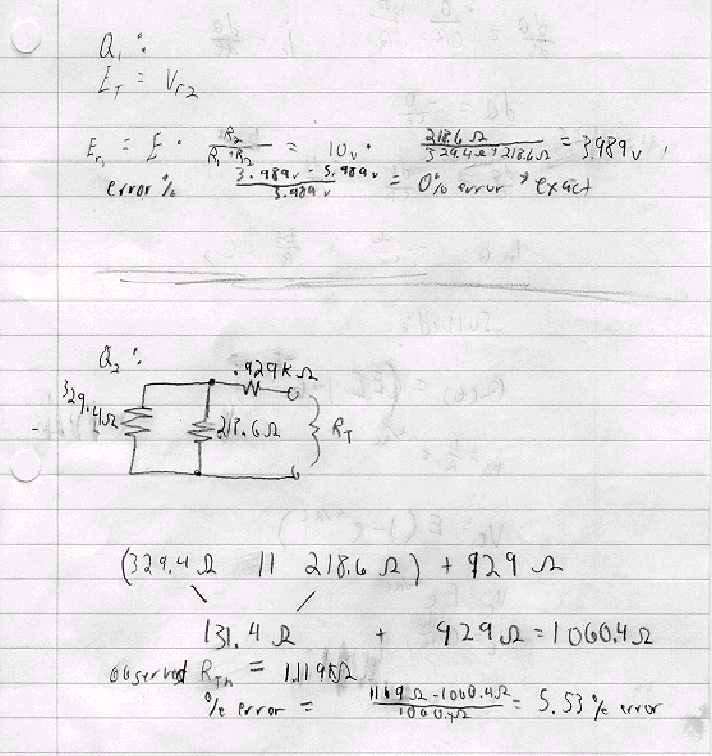 Q1 :
ET = Vr2
E = E · R2 / R1 + R2 = 10v · 218.6 Ω / 329.4 Ω + 218.6 Ω = 3.989 v
error % 3.989v - 3.989v / 3.989 v = 0% error → exact
Q2 :
.929K Ω
329.4Ω
218.6 Ω
RT
(329.4 Ω || 218.6 Ω) + 929 Ω
131.4 Ω + 929 Ω = 1060.4 Ω
observed RTh = 1.119KΩ
% error = 1119 Ω - 1060.4Ω / 1060.4Ω = 5.53 % error